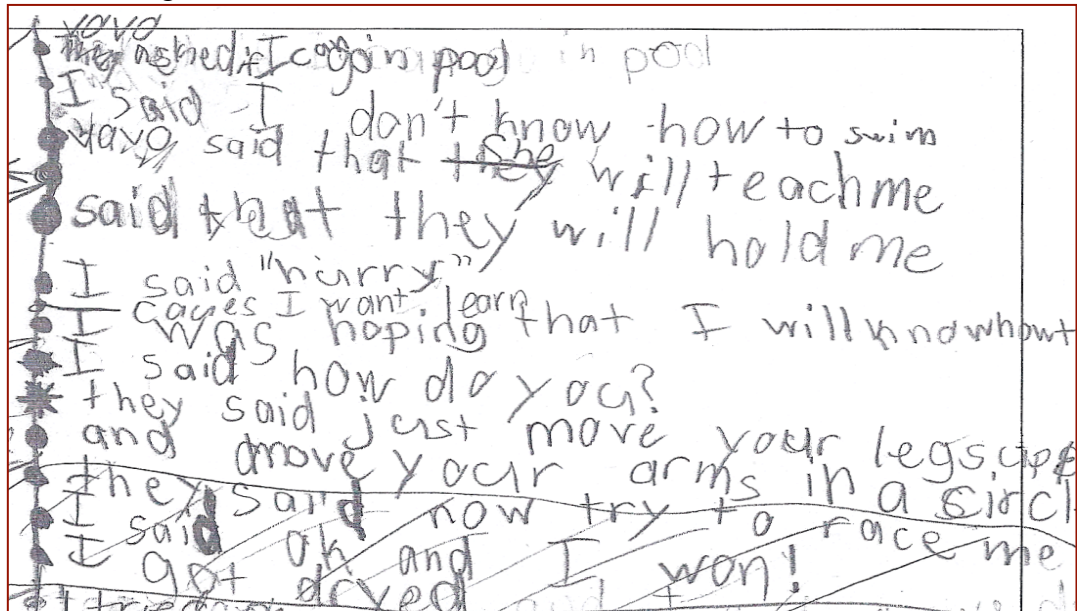 yovo
they asked if I can go in pool in pool
I said I don't know how to swim
yovo said that she will teach me
said that they will hold me
I said "hurry"
cayes I want learn
I was hoping that I will know how t
I said how do you?
they said just move your legs up
and move your arms in a circl
they said now try to race me
I said ok and I won!
I got dryed and